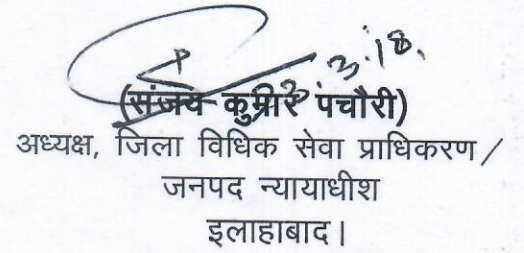 (संजय कुमार पचौरी)
अध्यक्ष, जिला विधिक सेवा प्राधिकरण/
जनपद न्यायाधीश
इलाहाबाद।